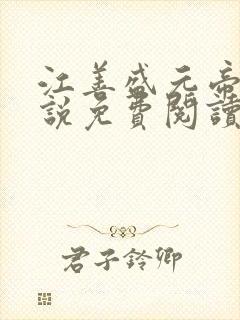 江善盛元帝
說免費閱讀
君子鈴卿